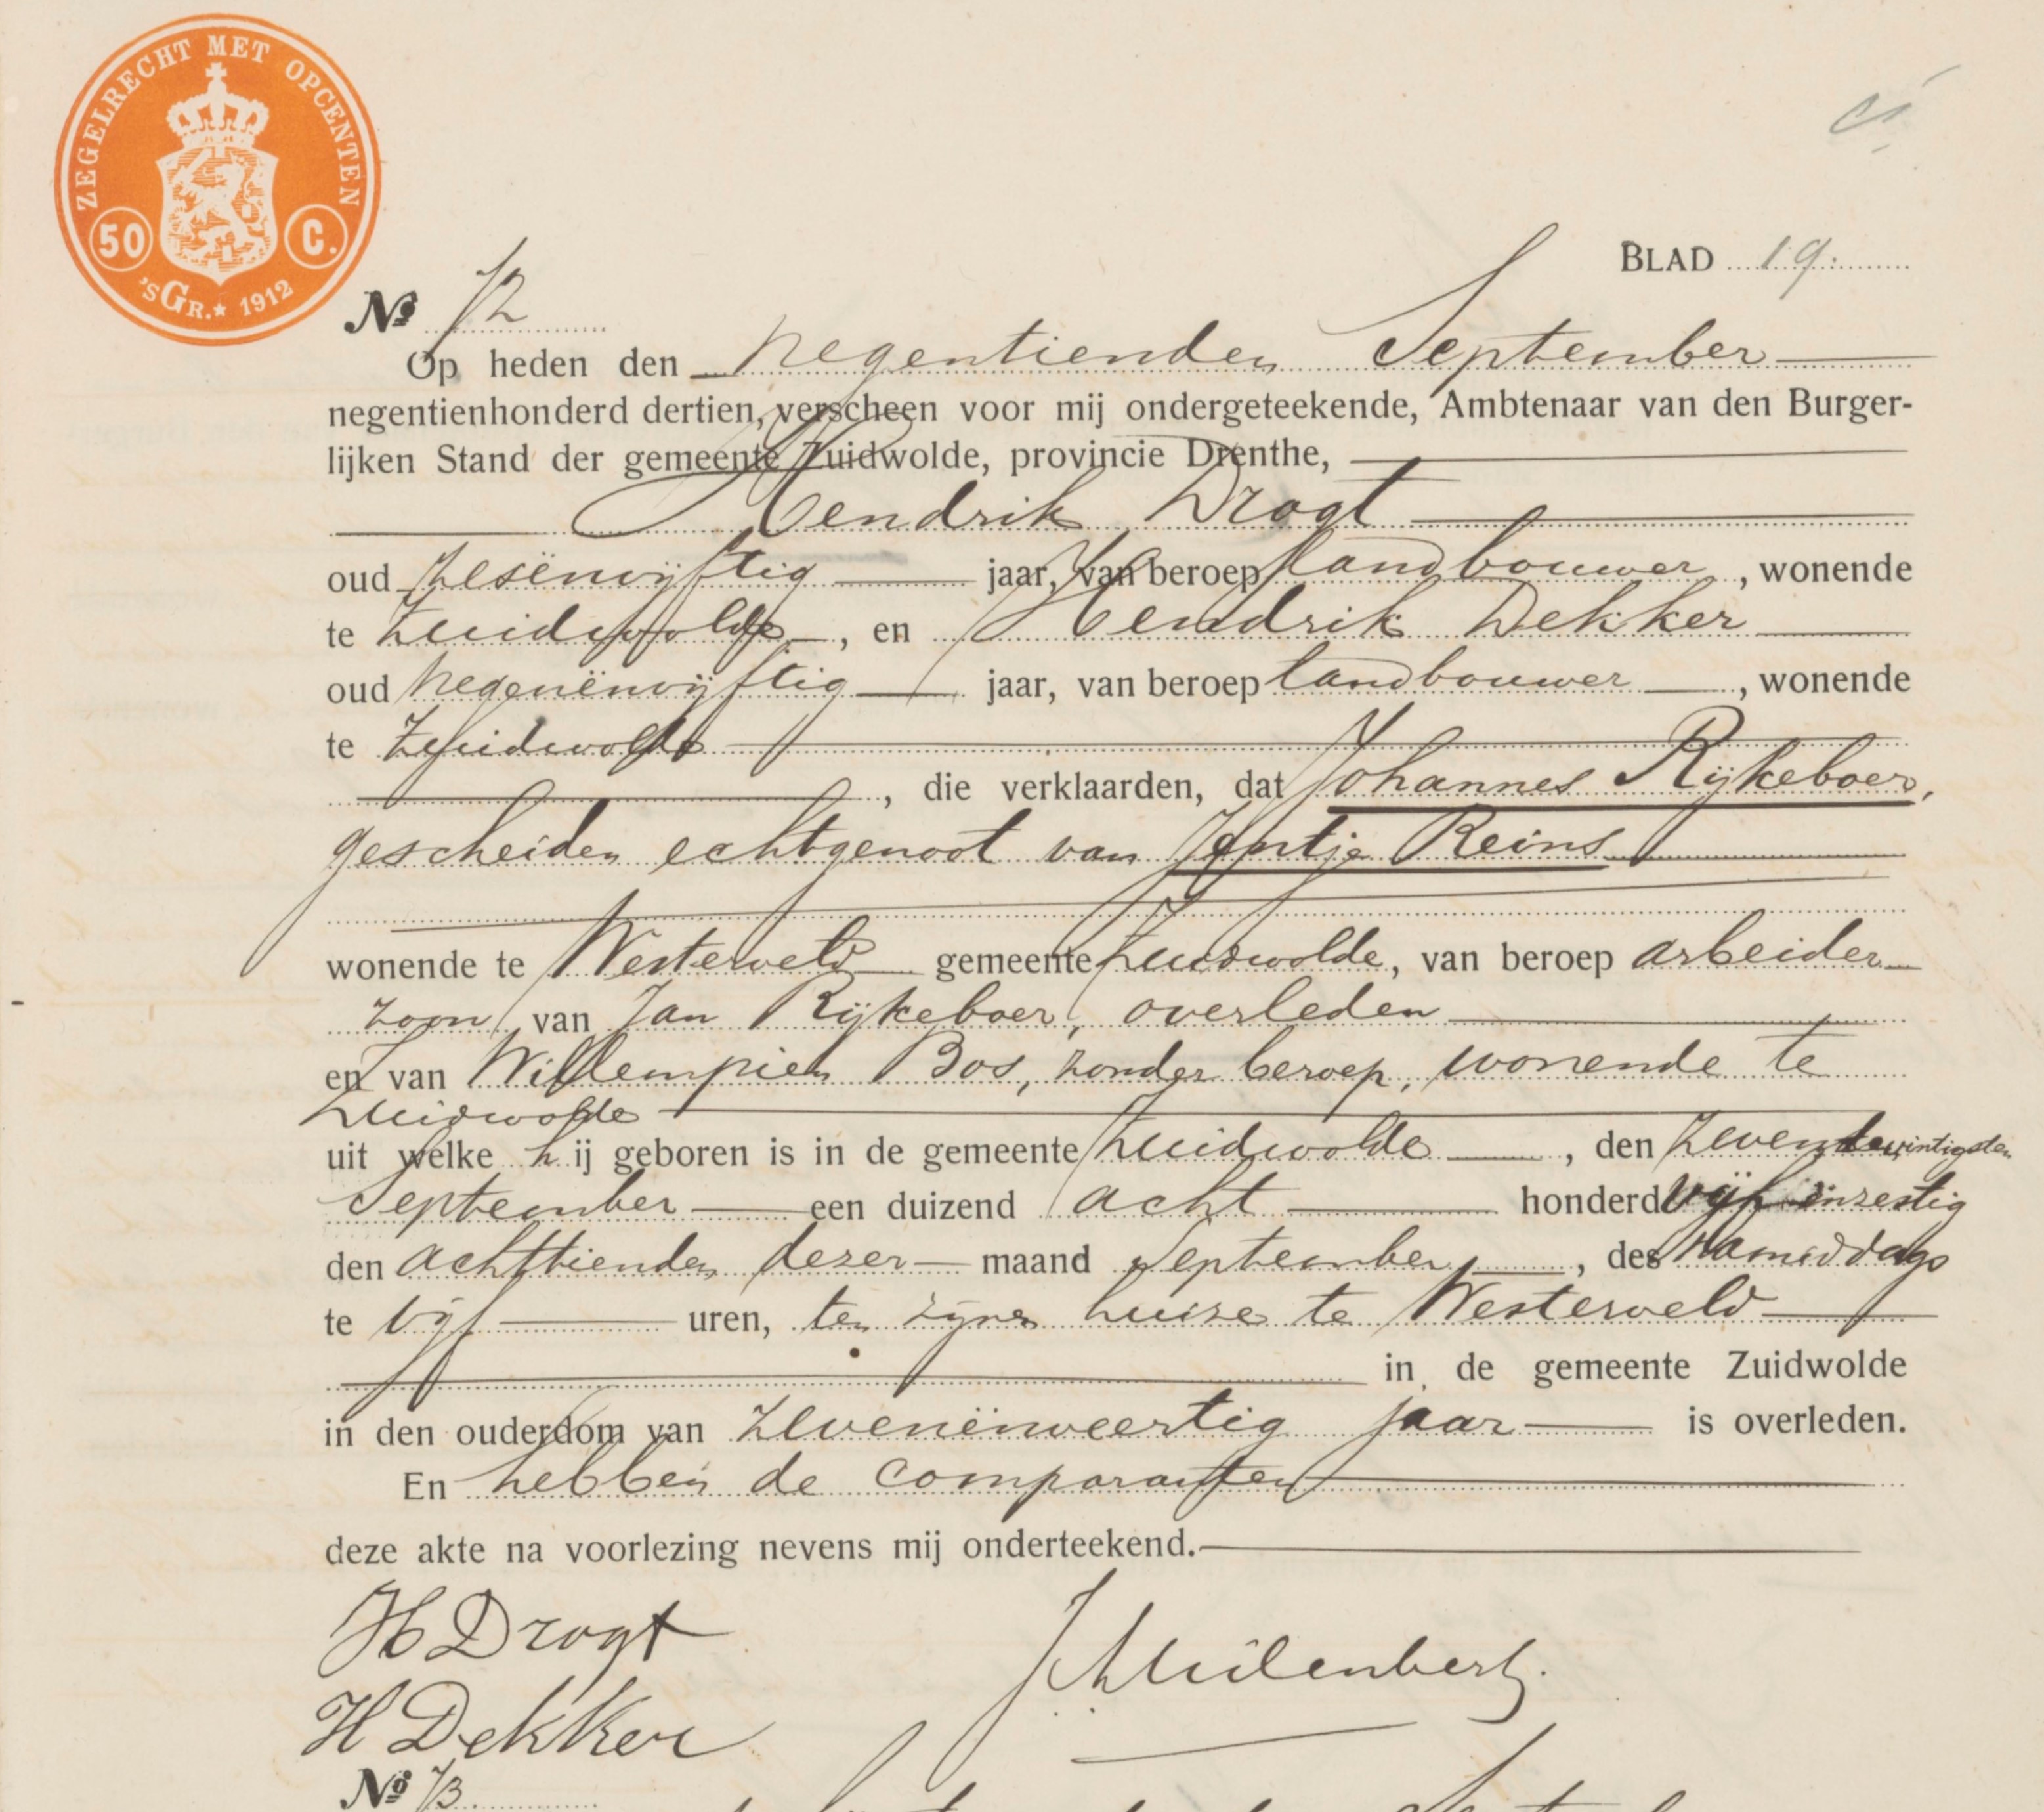 ZEGELRECHT MET OPCENTEN
50 C.
'SGR.★ 1912
BLAD 19.
No 72
Op heden den negentienden September
negentienhonderd dertien, verscheen voor mij ondergeteekende, Ambtenaar van den Burger-
lijken Stand der gemeente Zuidwolde, provincie Drenthe,
Hendrik Drogt
oud zesënvijftig jaar, van beroep landbouwer, wonende
te Zuidwolde, en Hendrik Dekker
oud negenënvijftig jaar, van beroep landbouwer, wonende
te Zuidwolde
, die verklaarden, dat Johannes Rijkeboer,
gescheiden echtgenoot van Jentje Reins
wonende te Westerveld gemeente Zuidwolde, van beroep arbeider
zoon van Jan Rijkeboer, overleden
en van Willempien Bos, zonder beroep, wonende te
Zuidwolde
uit welke hij geboren is in de gemeente Zuidwolde, den zevenentwintigsten
September een duizend acht honderd vijf enzestig
den achttienden dezer maand September, des namiddags
te vijf uren, ten zijnen huize te Westerveld
in de gemeente Zuidwolde
in den ouderdom van zevenënveertig jaar is overleden.
En hebben de comparanten
deze akte na voorlezing nevens mij onderteekend.
H Drogt
H Dekker
No 73